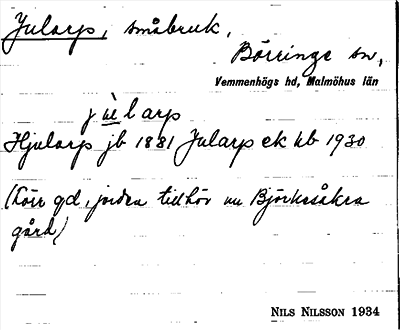 Jularp, småbruk,
Börringe sn,
Vemmenhögs hd, Malmöhus län
jùlarp
Hjularp jb 1881 Jularp ek kb 1930
(Förr gd, jorden tillhör nu Björkesåkra
gård)
NILS NILSSON 1934